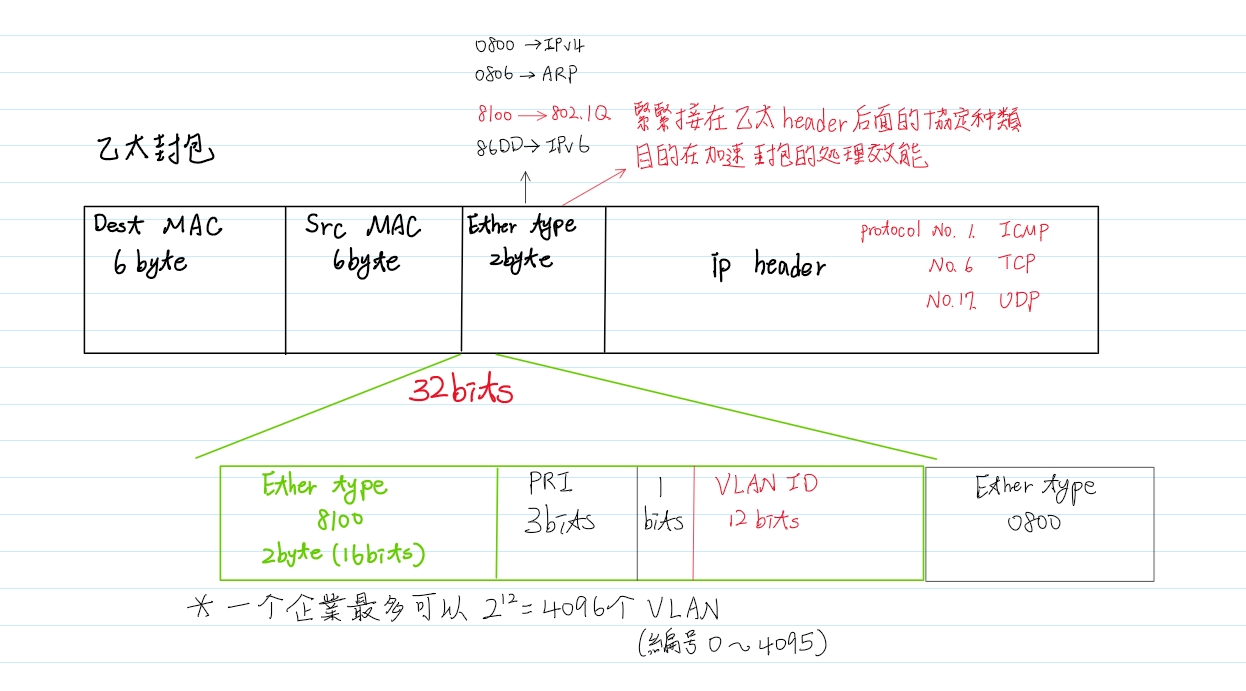 0800 →IPv4
0806 → ARP
8100 → 802.1Q
86DD→ IPv6
緊緊接在乙太header后面的協定种類
目的在加速封包的処理效能
乙太封包
Dest MAC
6 byte
Src MAC
6byte
Ether type
2byte
ip header
protocol No. 1. ICMP
No. 6 TCP
No. 17. UDP
32bits
Ether type
8100
2byte (16bits)
PRI
3bits
1
bits
VLAN ID
12 bits
Ether type
0800
* 一个企業最多可以 2¹² = 4096个 VLAN
(編号 0～4095)